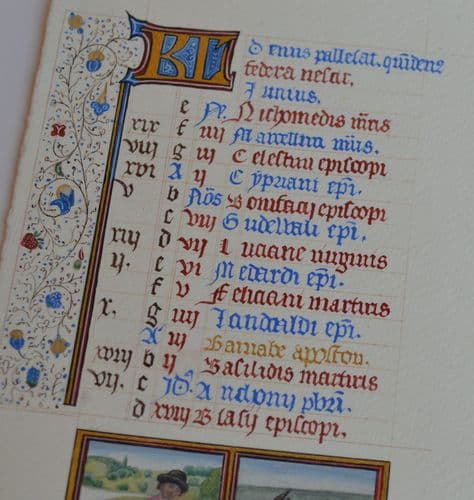 KL Denus pallesat. quidenz
federa nescit.
Iunius.
e N. Nichomedis mris
xix f iiij Marcellini mris.
viij g iij Celestini episcopi
xvi A ij Cypriani epi.
v b Nos Bonifacij episcopi
c viij Gudewali epi.
xiij d vij Luciane virginis
ij. e vi Medardi epi.
f v Feliciani martiris
x. g iiij Landraldi epi.
A iij Barnabe apostoli.
xviij b ij Basilidis martiris
vij. c Id. Anthonij pbri.
d xviij Blasij episcopi.